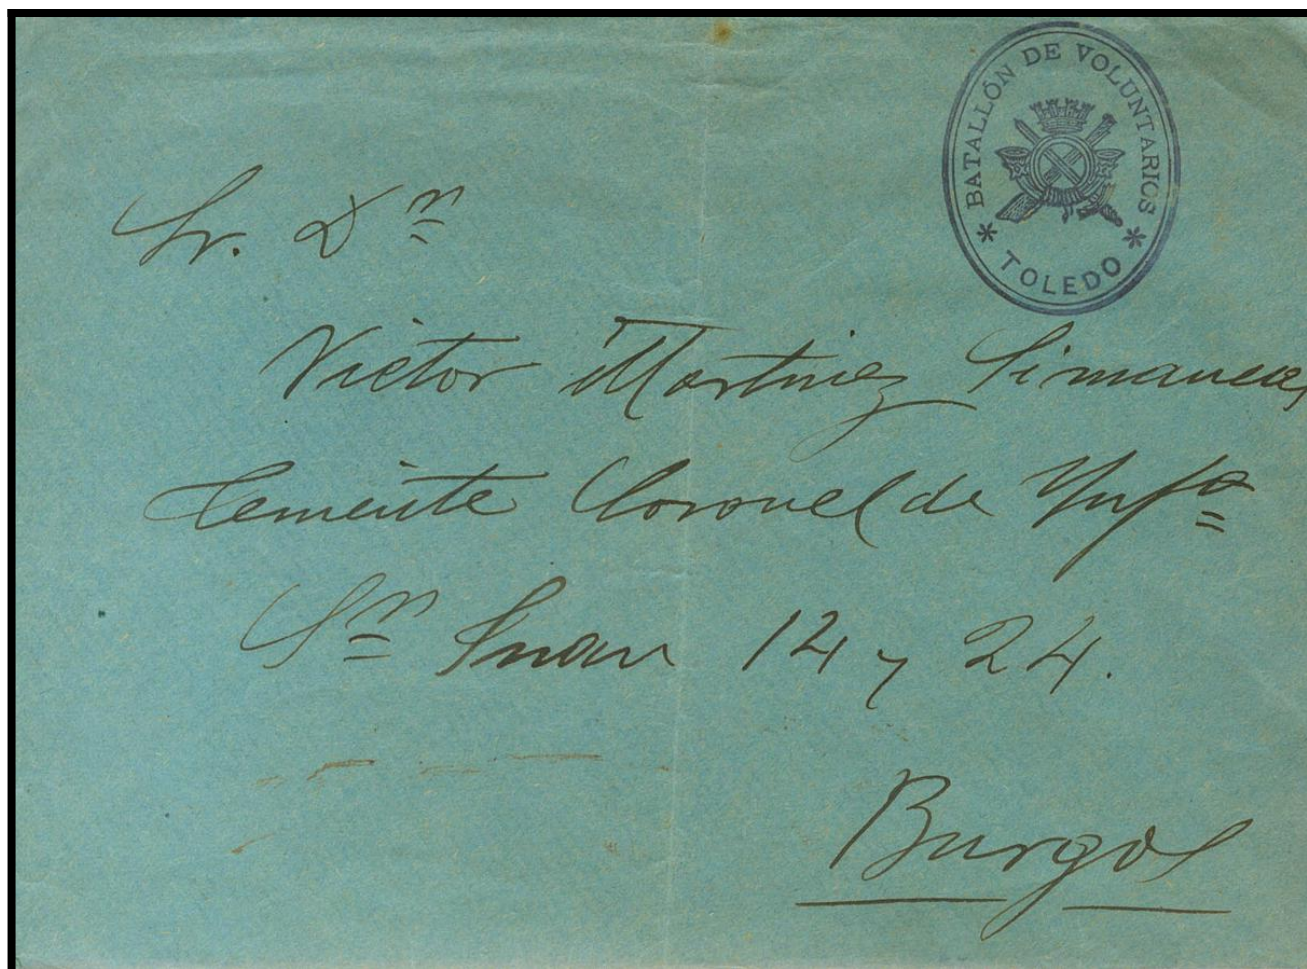 BATALLÓN DE VOLUNTARIOS
* TOLEDO *
Sr. Dⁿ
Victor Martinez Simancas
teniente Coronel de Ynfª
Sⁿ Juan 12 y 24.
Burgos